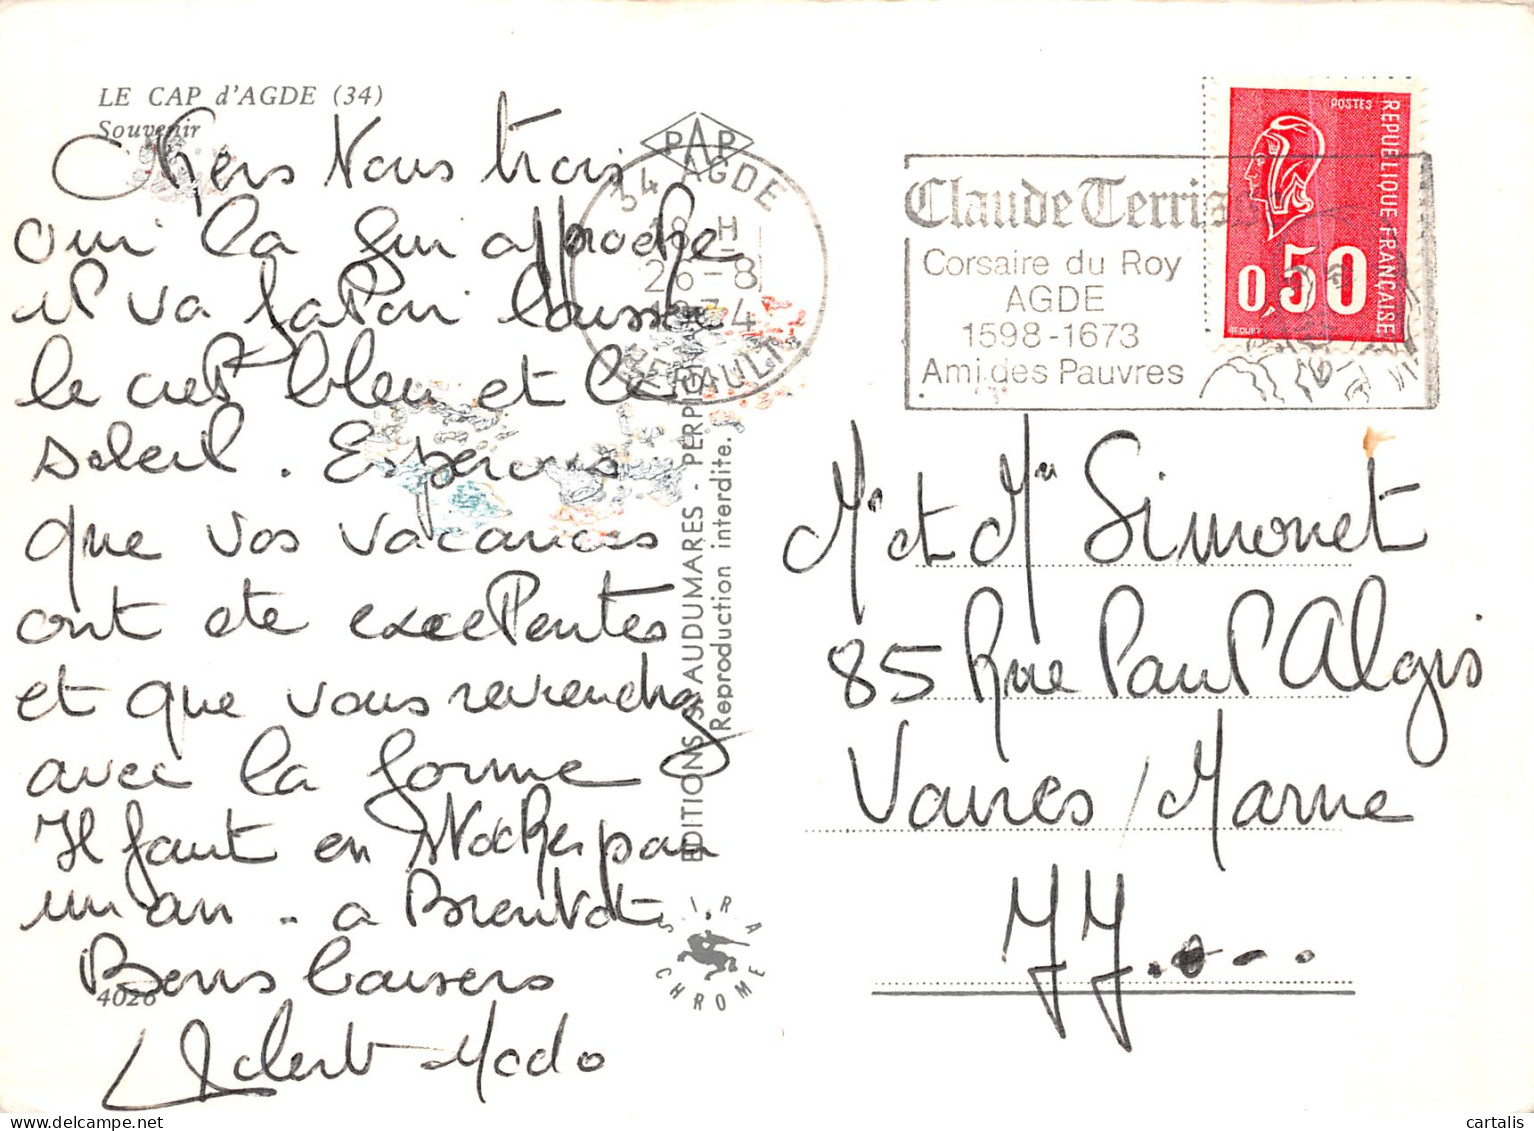 LE CAP d'AGDE (34)
Souvenir
Chers Vous trois
oui la fin approche
il va falloir laisser
le ciel bleu et le
soleil. Esperons
que vos vacances
ont ete excellentes
et que vous reviendrez
avec la forme
Il faut en stocker pour
un an - a Bientot
Bons baisers
Mado
4026
PAP
34 AGDE
18 H
26-8
1974
HERAULT
EDITIONS S. AUDUMARES - PERPIGNAN
Reproduction interdite.
S I R A
CHROME
Claude Terrisse
Corsaire du Roy
AGDE
1598-1673
Ami des Pauvres
POSTES
REPUBLIQUE FRANÇAISE
0,50
BEQUET
Mr et Mme Simonet
85 Rue Paul Algis
Vaires / Marne
77...
cartalis